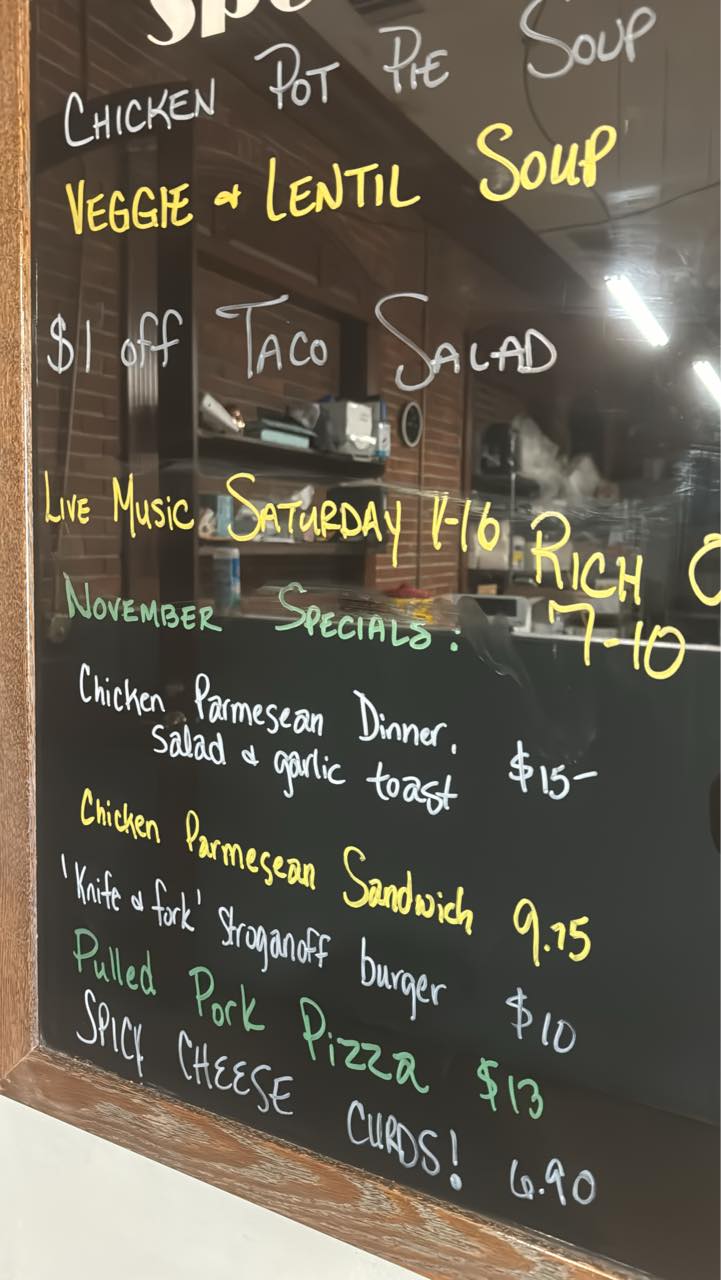 CHICKEN POT PIE SOUP
VEGGIE & LENTIL SOUP
$1 off TACO SALAD
LIVE MUSIC SATURDAY 11-16 RICH
7-10
NOVEMBER SPECIALS:
Chicken Parmesean Dinner.
salad & garlic toast $15-
Chicken Parmesean Sandwich 9.75
'Knife & fork' Stroganoff burger $10
Pulled Pork Pizza $13
SPICY CHEESE CURDS! 6.90